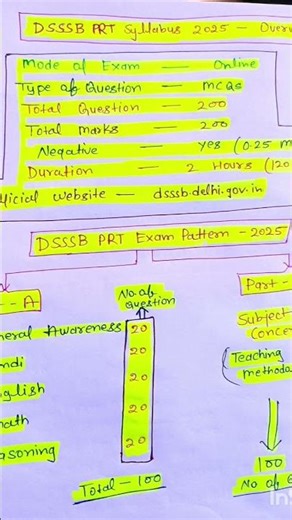 DSSSB PRT Syllabus 2025 – Over
Mode of Exam — Online
Type of Question — MCQs
Total Question — 200
Total marks — 200
Negative — Yes (0.25 m
Duration — 2 Hours (120
ficial website — dsssb.delhi.gov.in
DSSSB PRT Exam Pattern - 2025
- A
No. of Question
Part -
neral Awareness 20
ndi 20
nglish 20
math 20
asoning 20
Total – 100
Subject
Conce
(Teaching
methodo
100
No of Q